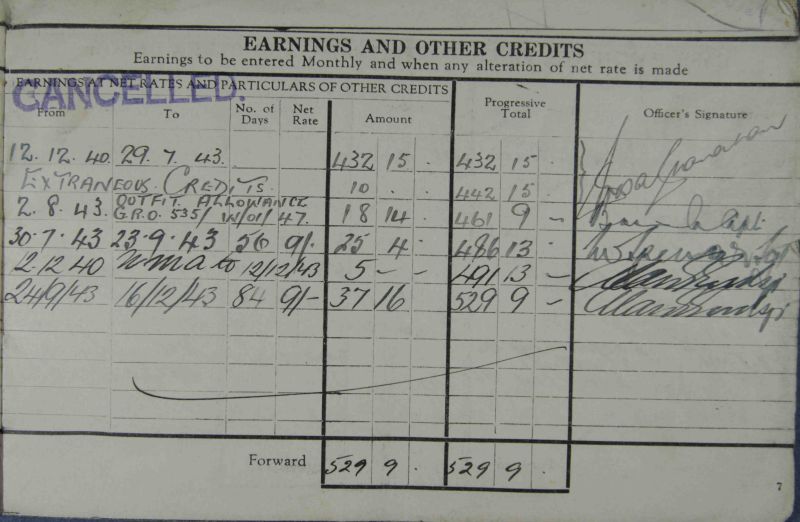 EARNINGS AND OTHER CREDITS
Earnings to be entered Monthly and when any alteration of net rate is made
EARNINGS AT NET RATES AND PARTICULARS OF OTHER CREDITS
CANCELLED.
From To No. of Days Net Rate Amount Progressive Total Officer's Signature
12. 12. 40. 29. 7. 43. 432 15 . 432 15 .
EXTRANEOUS CREDITS. 10 . . 442 15 .
OUTFIT ALLOWANCE
2. 8. 43. G.R.O. 535/ W/01/ 47. 18 14 . 461 9 –
30. 7. 43 23. 9. 43 56 9/. 25 4 . 486 13 .
12.12.40 to 12/12/43 5 – – 491 13 –
24/9/43 16/12/43 84 9/– 37 16 529 9 –
Forward 529 9 . 529 9 .
7